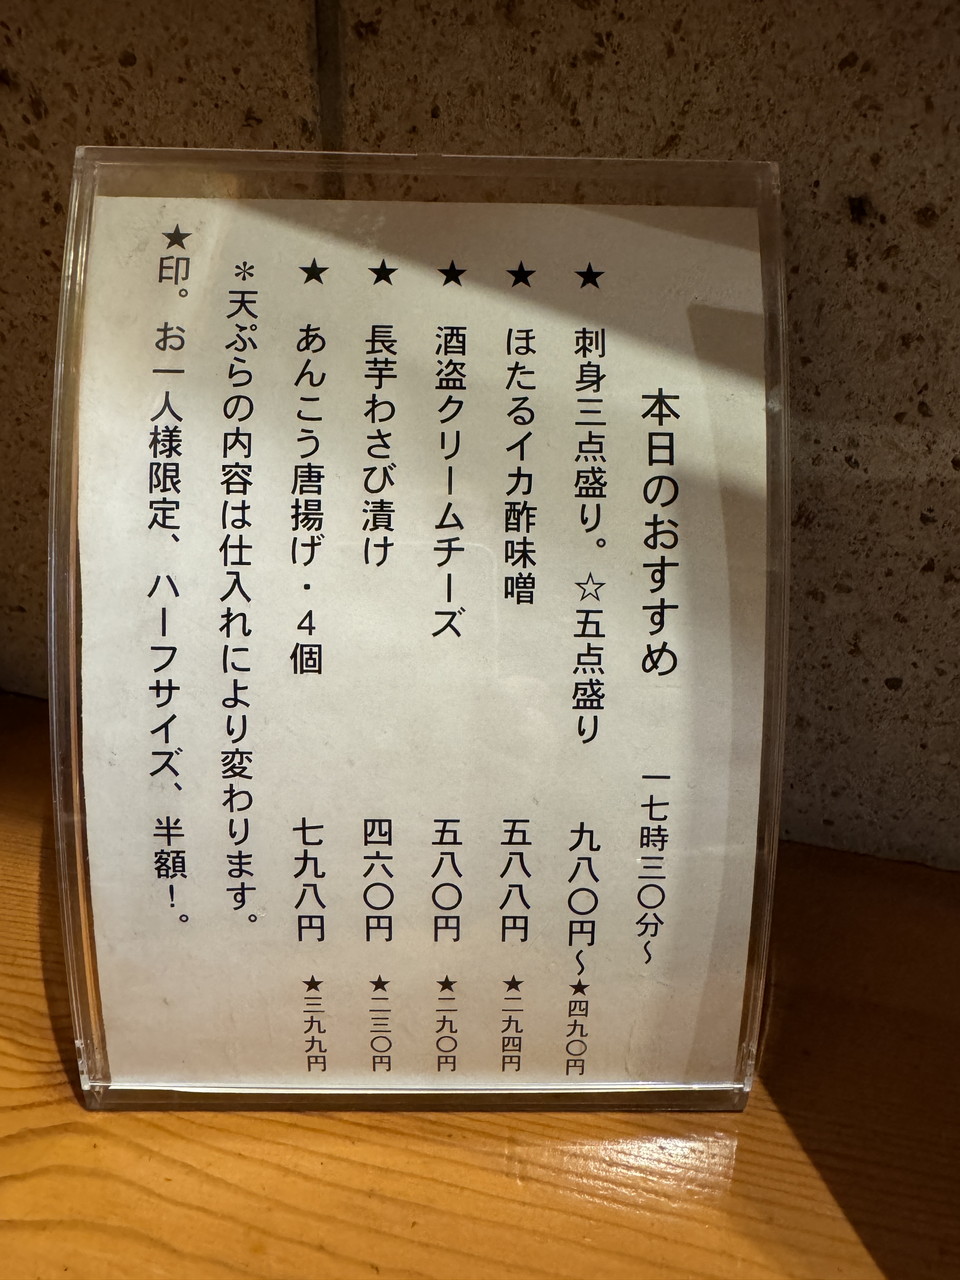 本日のおすすめ　一七時三〇分～
★　刺身三点盛り。☆五点盛り　九八〇円～★四九〇円
★　ほたるイカ酢味噌　五八八円　★二九四円
★　酒盗クリームチーズ　五八〇円　★二九〇円
★　長芋わさび漬け　四六〇円　★二三〇円
★　あんこう唐揚げ・4個　七九八円　★三九九円
＊天ぷらの内容は仕入れにより変わります。
★印。お一人様限定、ハーフサイズ、半額！。